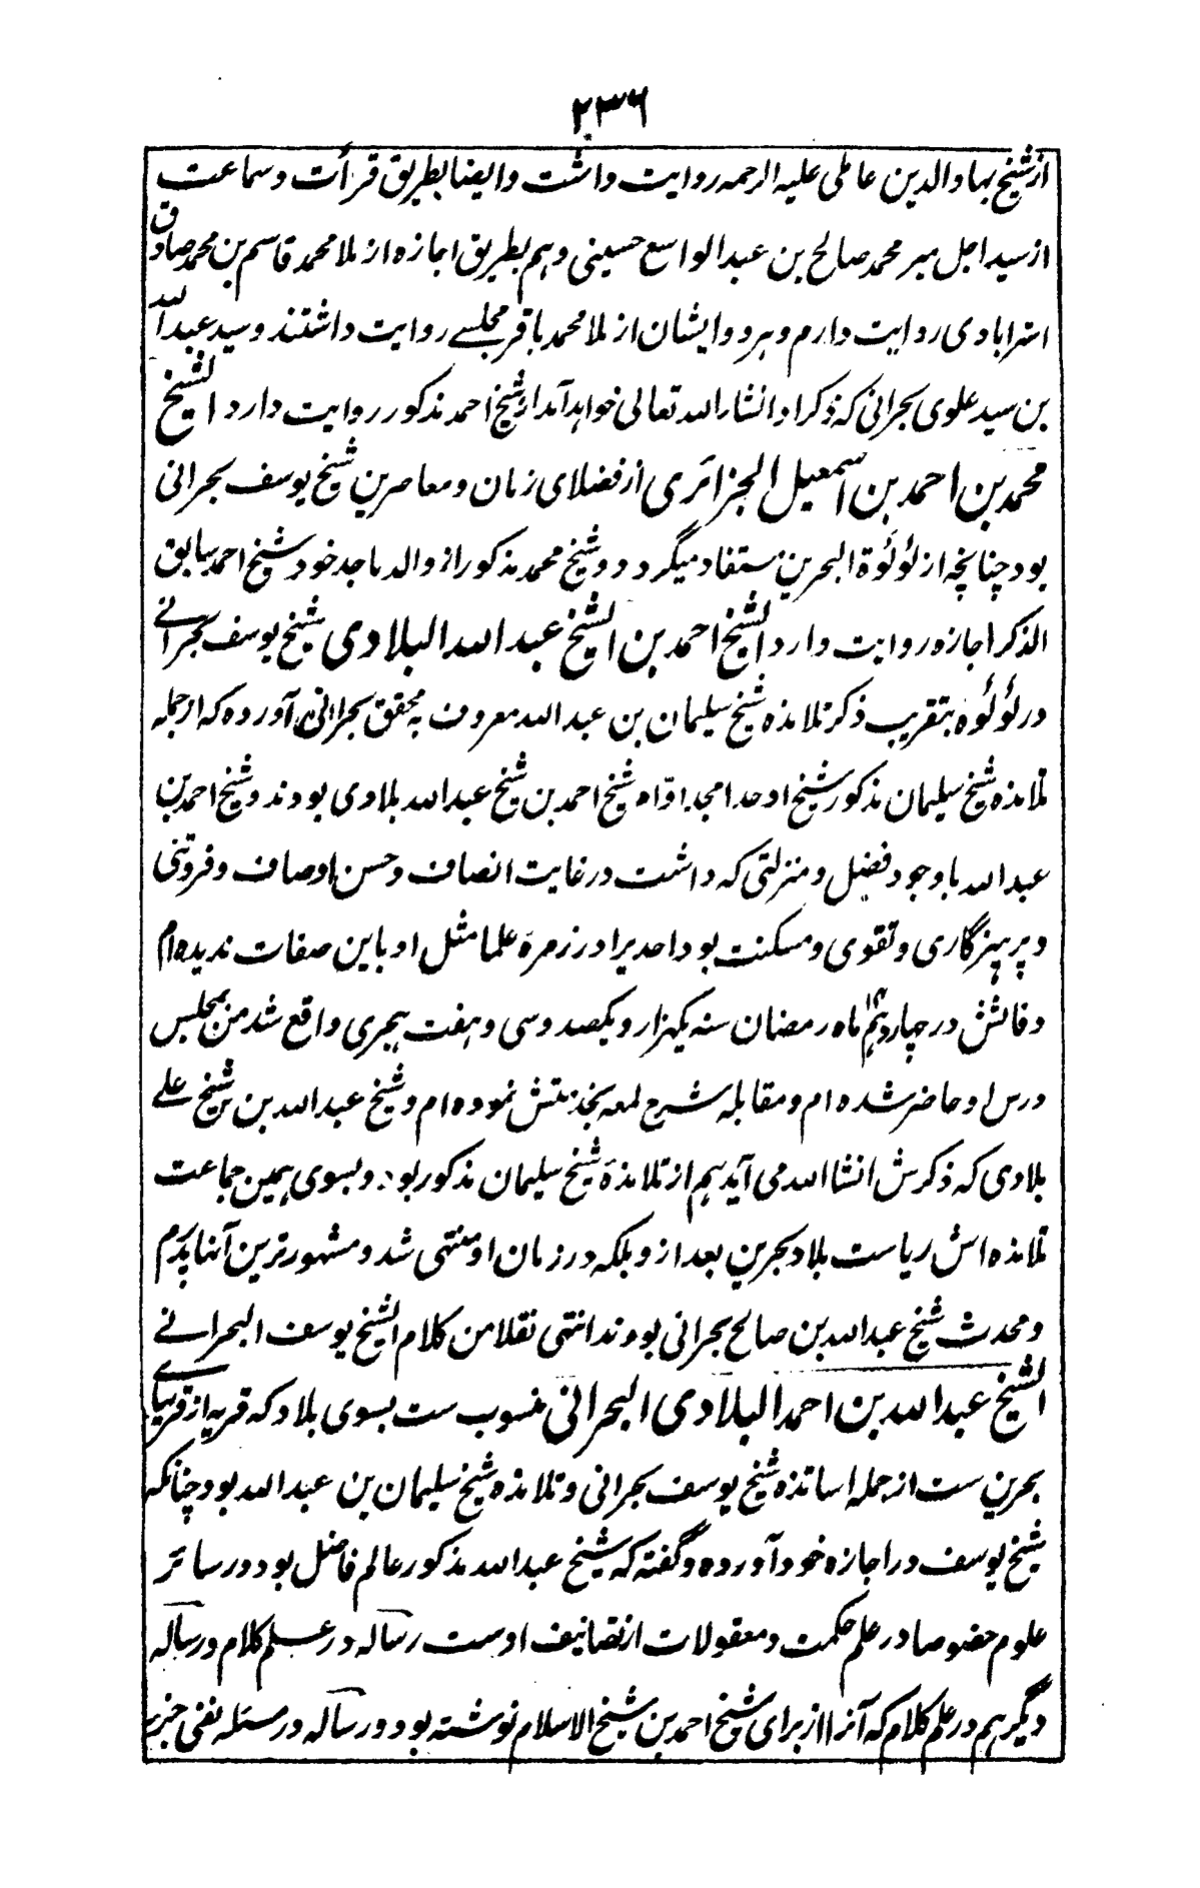 ۲۳۶
از شیخ بهاء الدین عاملی علیه الرحمه روایت داشت و ایضا بطریق قرأت و سماعت
از سید اجل میر محمد صالح بن عبد الواسع حسینی و هم بطریق اجازه از ملا محمد قاسم بن محمد صادق
استرابادی روایت دارم و هر دو ایشان از ملا محمد باقر مجلسے روایت داشتند و سید عبد الله
بن سید علوی بحرانی که ذکر او انشاء الله تعالی خواهد آمد از شیخ احمد مذکور روایت دارد الشیخ
محمد بن احمد بن اسمعیل الجزائری از فضلای زمان و معاصرین شیخ یوسف بحرانی
بود چنانچه از لؤلؤة البحرین مستفاد میگردد و شیخ محمد مذکور از والد ماجد خود شیخ احمد سابق
الذکر اجازه روایت دارد الشیخ احمد بن الشیخ عبد الله البلادی شیخ یوسف بحرانے
در لؤلؤه بتقریب ذکر تلامذه شیخ سلیمان بن عبد الله معروف به محقق بحرانی آورده که از جمله
تلامذه شیخ سلیمان مذکور شیخ اوحد امجد اوّاه شیخ احمد بن شیخ عبد الله بلادی بودند و شیخ احمد بن
عبد الله با وجود فضل و منزلتی که داشت در غایت انصاف و حسن اوصاف و فروتنی
و پرهیزگاری و تقوی و مسکنت بود احدیرا در زمرهٔ علما مثل او باین صفات ندیده ام
وفاتش در چهاردهم ماه رمضان سنه یکهزار و یکصد و سی و هفت هجری واقع شد من بمجلس
درس او حاضر شده ام و مقابله شرح لمعه بخدمتش نموده ام و شیخ عبد الله بن شیخ علے
بلادی که ذکرش انشا الله می آید هم از تلامذهٔ شیخ سلیمان مذکور بود و بسوی همین جماعت
تلامذه اش ریاست بلاد بحرین بعد از و بلکه در زمان او منتهی شد و مشهور ترین آنها پدرم
و محدث شیخ عبد الله بن صالح بحرانی بودند انتهی نقلا من کلام الشیخ یوسف البحرانے
الشیخ عبد الله بن احمد البلادی البحرانی منسوب ست بسوی بلاد که قریه از قریهای
بحرین ست از جمله اساتذه شیخ یوسف بحرانی و تلامذه شیخ سلیمان بن عبد الله بود چنانکه
شیخ یوسف در اجازه خود آورده و گفته که شیخ عبد الله مذکور عالم فاضل بود در سائر
علوم خصوصا در علم حکمت و معقولات از تصانیف اوست رساله در علم کلام و رساله
دیگر هم در علم کلام که آنرا از برای شیخ احمد بن شیخ الاسلام نوشته بود و رساله در مسئله نفی جزء